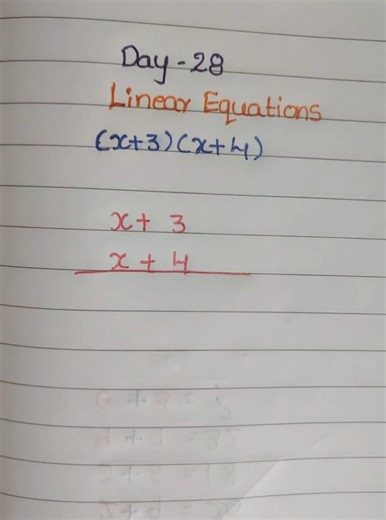 Day - 28
Linear Equations
(x+3)(x+4)
x + 3
x + 4